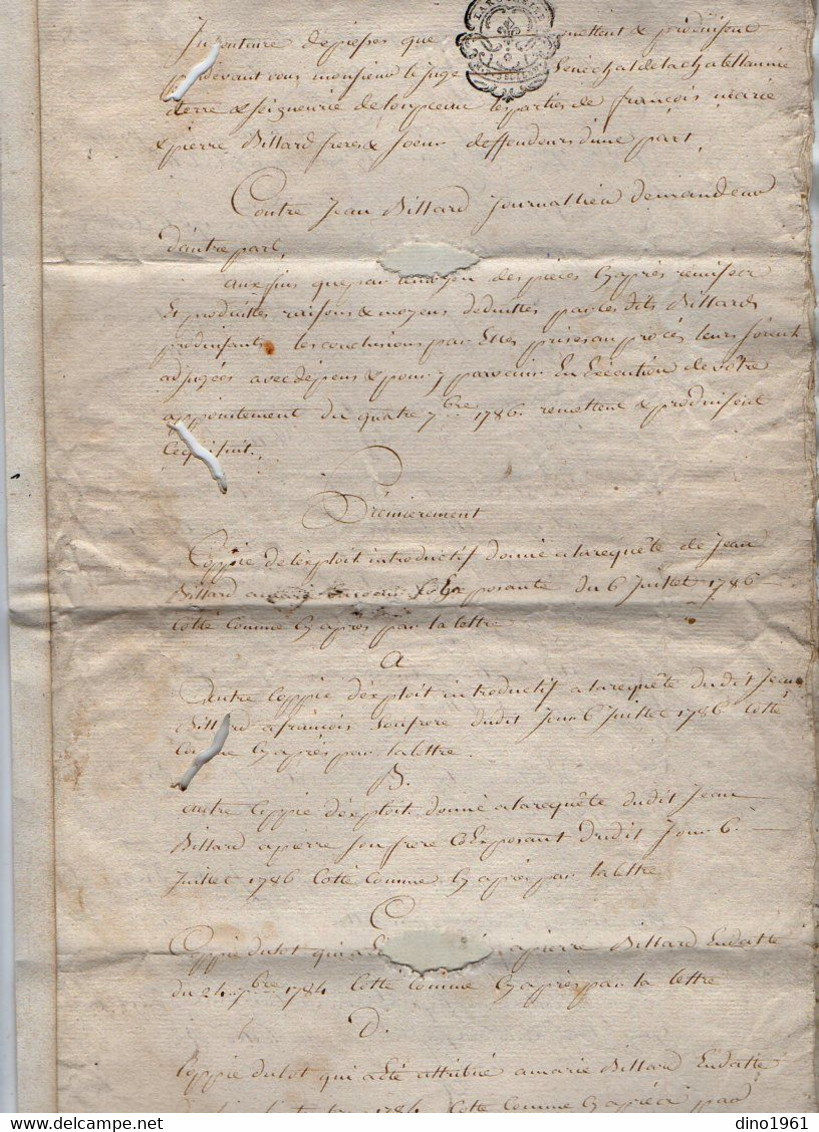 Inventaire de pieses que mettent & produisent
pardevant vous monsieur le juge Senechal de la chatellannie
terre & seigneurie de Loupeau les parties de françois, marie
& pierre Billard freres & soeur deffendeurs d'une part,
Contre Jean Billard Journallieu demandeur
d'autre part,
aux fins que par des pieces cy après remises
Et produittes raisons & moyens deduittes par les dits Billards
produisants les conclusions par Elles prises au procès leurs soient
adjugées avec dépens & pour y parvenir En Exécution de votre
appointement du quatre 7bre 1786. remettent & produisent
ce qui suit.
Prémierement
Coppie de lexploit introductif donné a la requête de Jean
Billard a Exposante du 6 Juillet 1786
Cotté Comme Cy apres par la lettre
A
autre Coppie d'éxploit introductif a la requête du dit Jean
Billard a françois son frere du dit Jour 6 Juillet 1786 Cotté
Comme Cy après par la lettre.
B.
autre Coppie d'éxploit donné a la requête du dit Jean
Billard a pierre son frere CoExposant du dit Jour 6
Juillet 1786 Cotté Comme Cy après par la lettre
C
Coppie du lot qui a a pierre Billard En datte
du 24 7bre 1784 Cotté Comme Cy après par la lettre
d.
Coppie du lot qui a été attribué a marie Billard En datte
1784 Cotté Comme Cy après par
dino1961